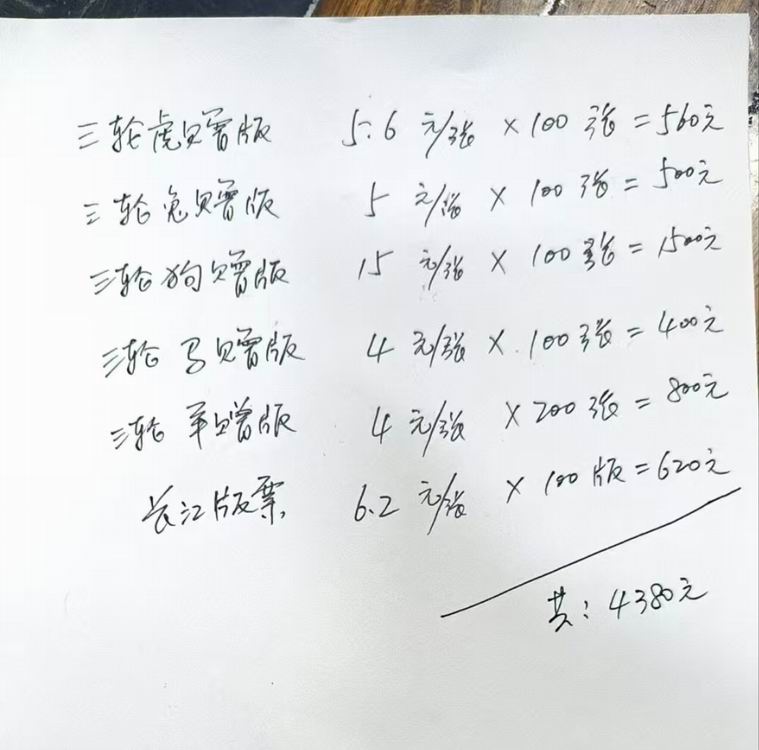 三轮虎赠版 5.6元/张 ×100张=560元
三轮兔赠版 5元/张 ×100张=500元
三轮狗赠版 15元/张 ×100张=1500元
三轮马赠版 4元/张 ×100张=400元
三轮羊赠版 4元/张 ×200张=800元
长江版票 6.2元/张 ×100版=620元
共:4380元